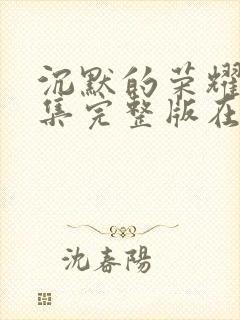 沉默的荣耀
集完整版在
沈春陽